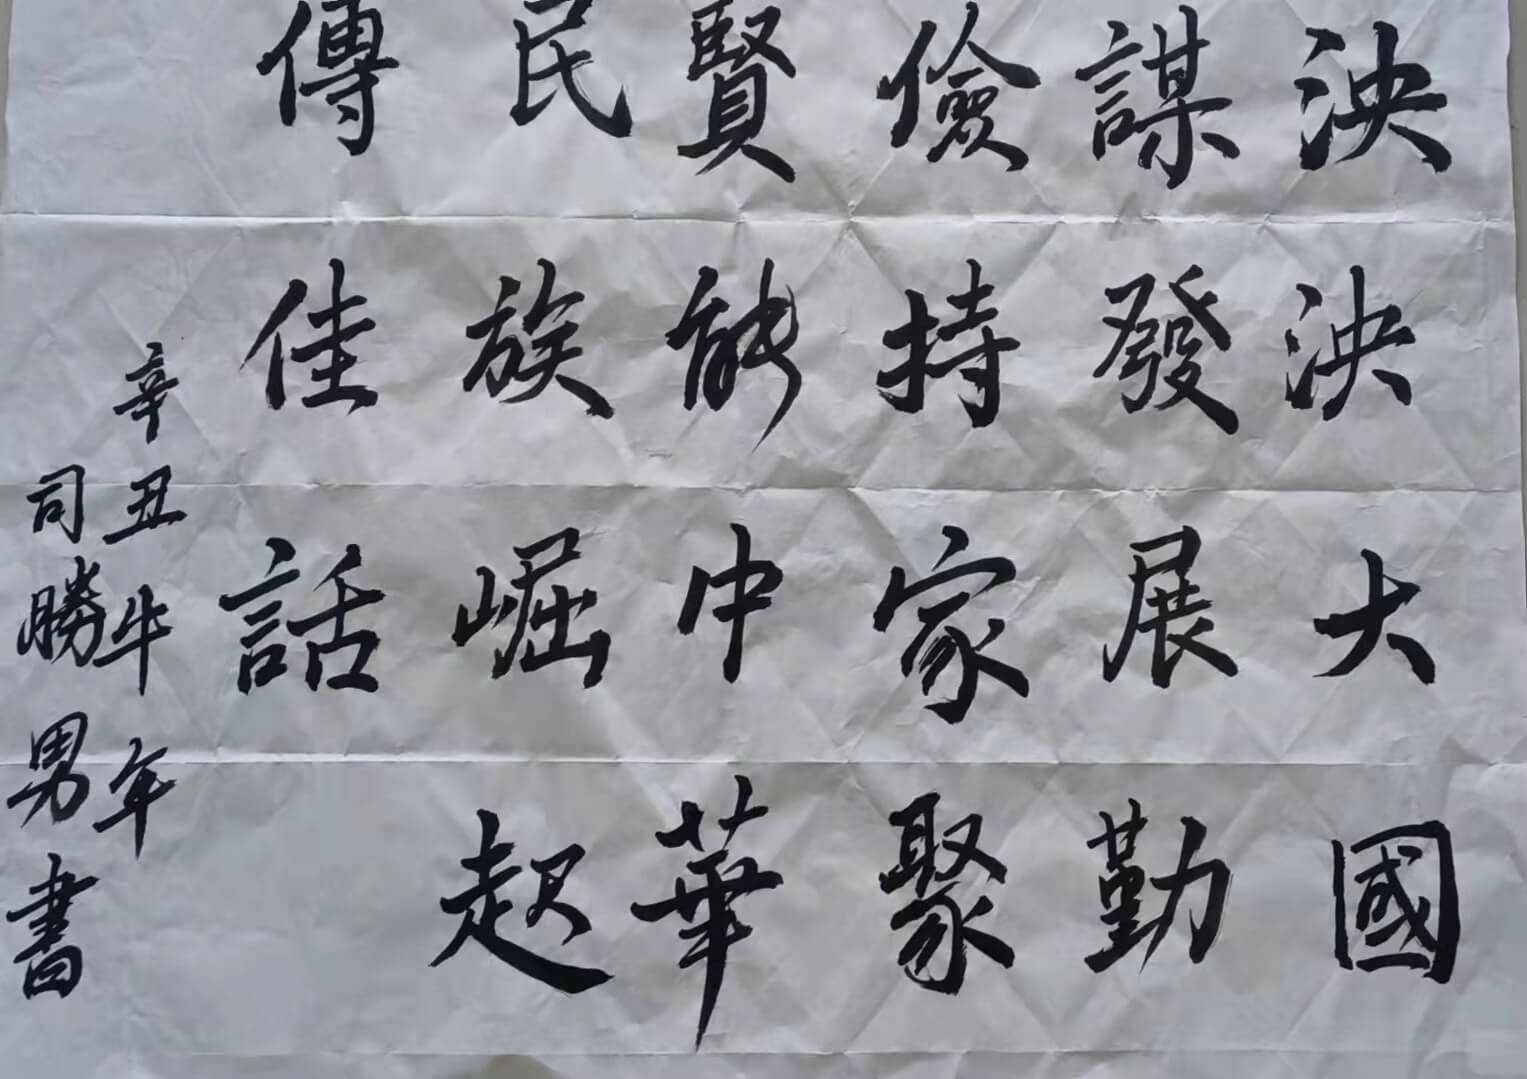 泱泱大國
謀發展勤
儉持家聚
賢能中華
民族崛起
傳佳話
辛丑牛年
司勝男書